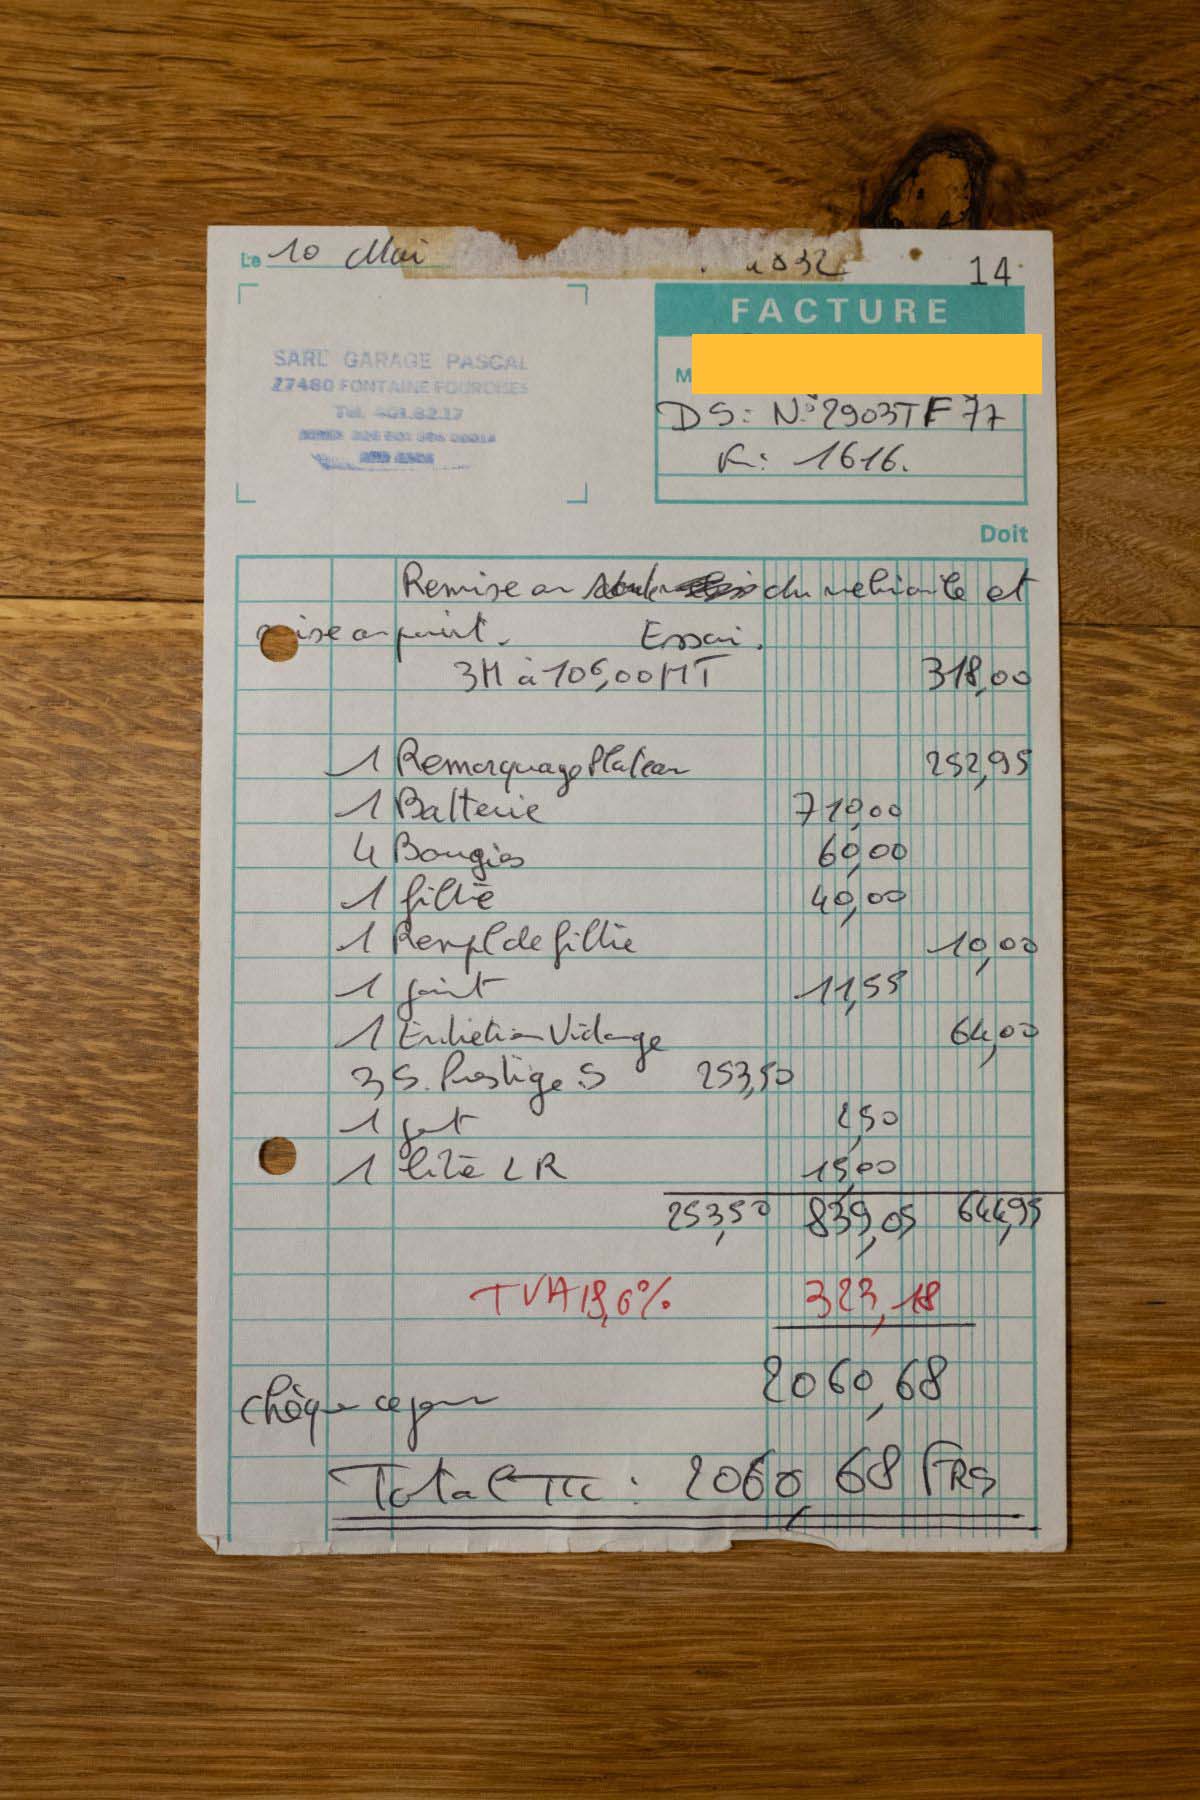 Le 10 Mai
14
FACTURE
SARL GARAGE PASCAL
27480 FONTAINE FOURCHES
Tél. 401.82.17
M
DS: N° 2903TF77
K: 1616.
Doit
Remise en du vehicule et
mise a point. Essai.
3H à 106,00HT 318,00
1 Remorquage Plateau 252,95
1 Batterie 710,00
4 Bougies 60,00
1 filtre 40,00
1 Rempl de filtre 10,00
1 joint 11,55
1 Entretien Vidange 64,00
3 S. Prestige S 253,50
1 joint 2,50
1 litre LR 15,00
253,50 839,05 644,95
TVA 18,6% 323,18
2060,68
chèque ce jour
Total TTC : 2060,68 FRS